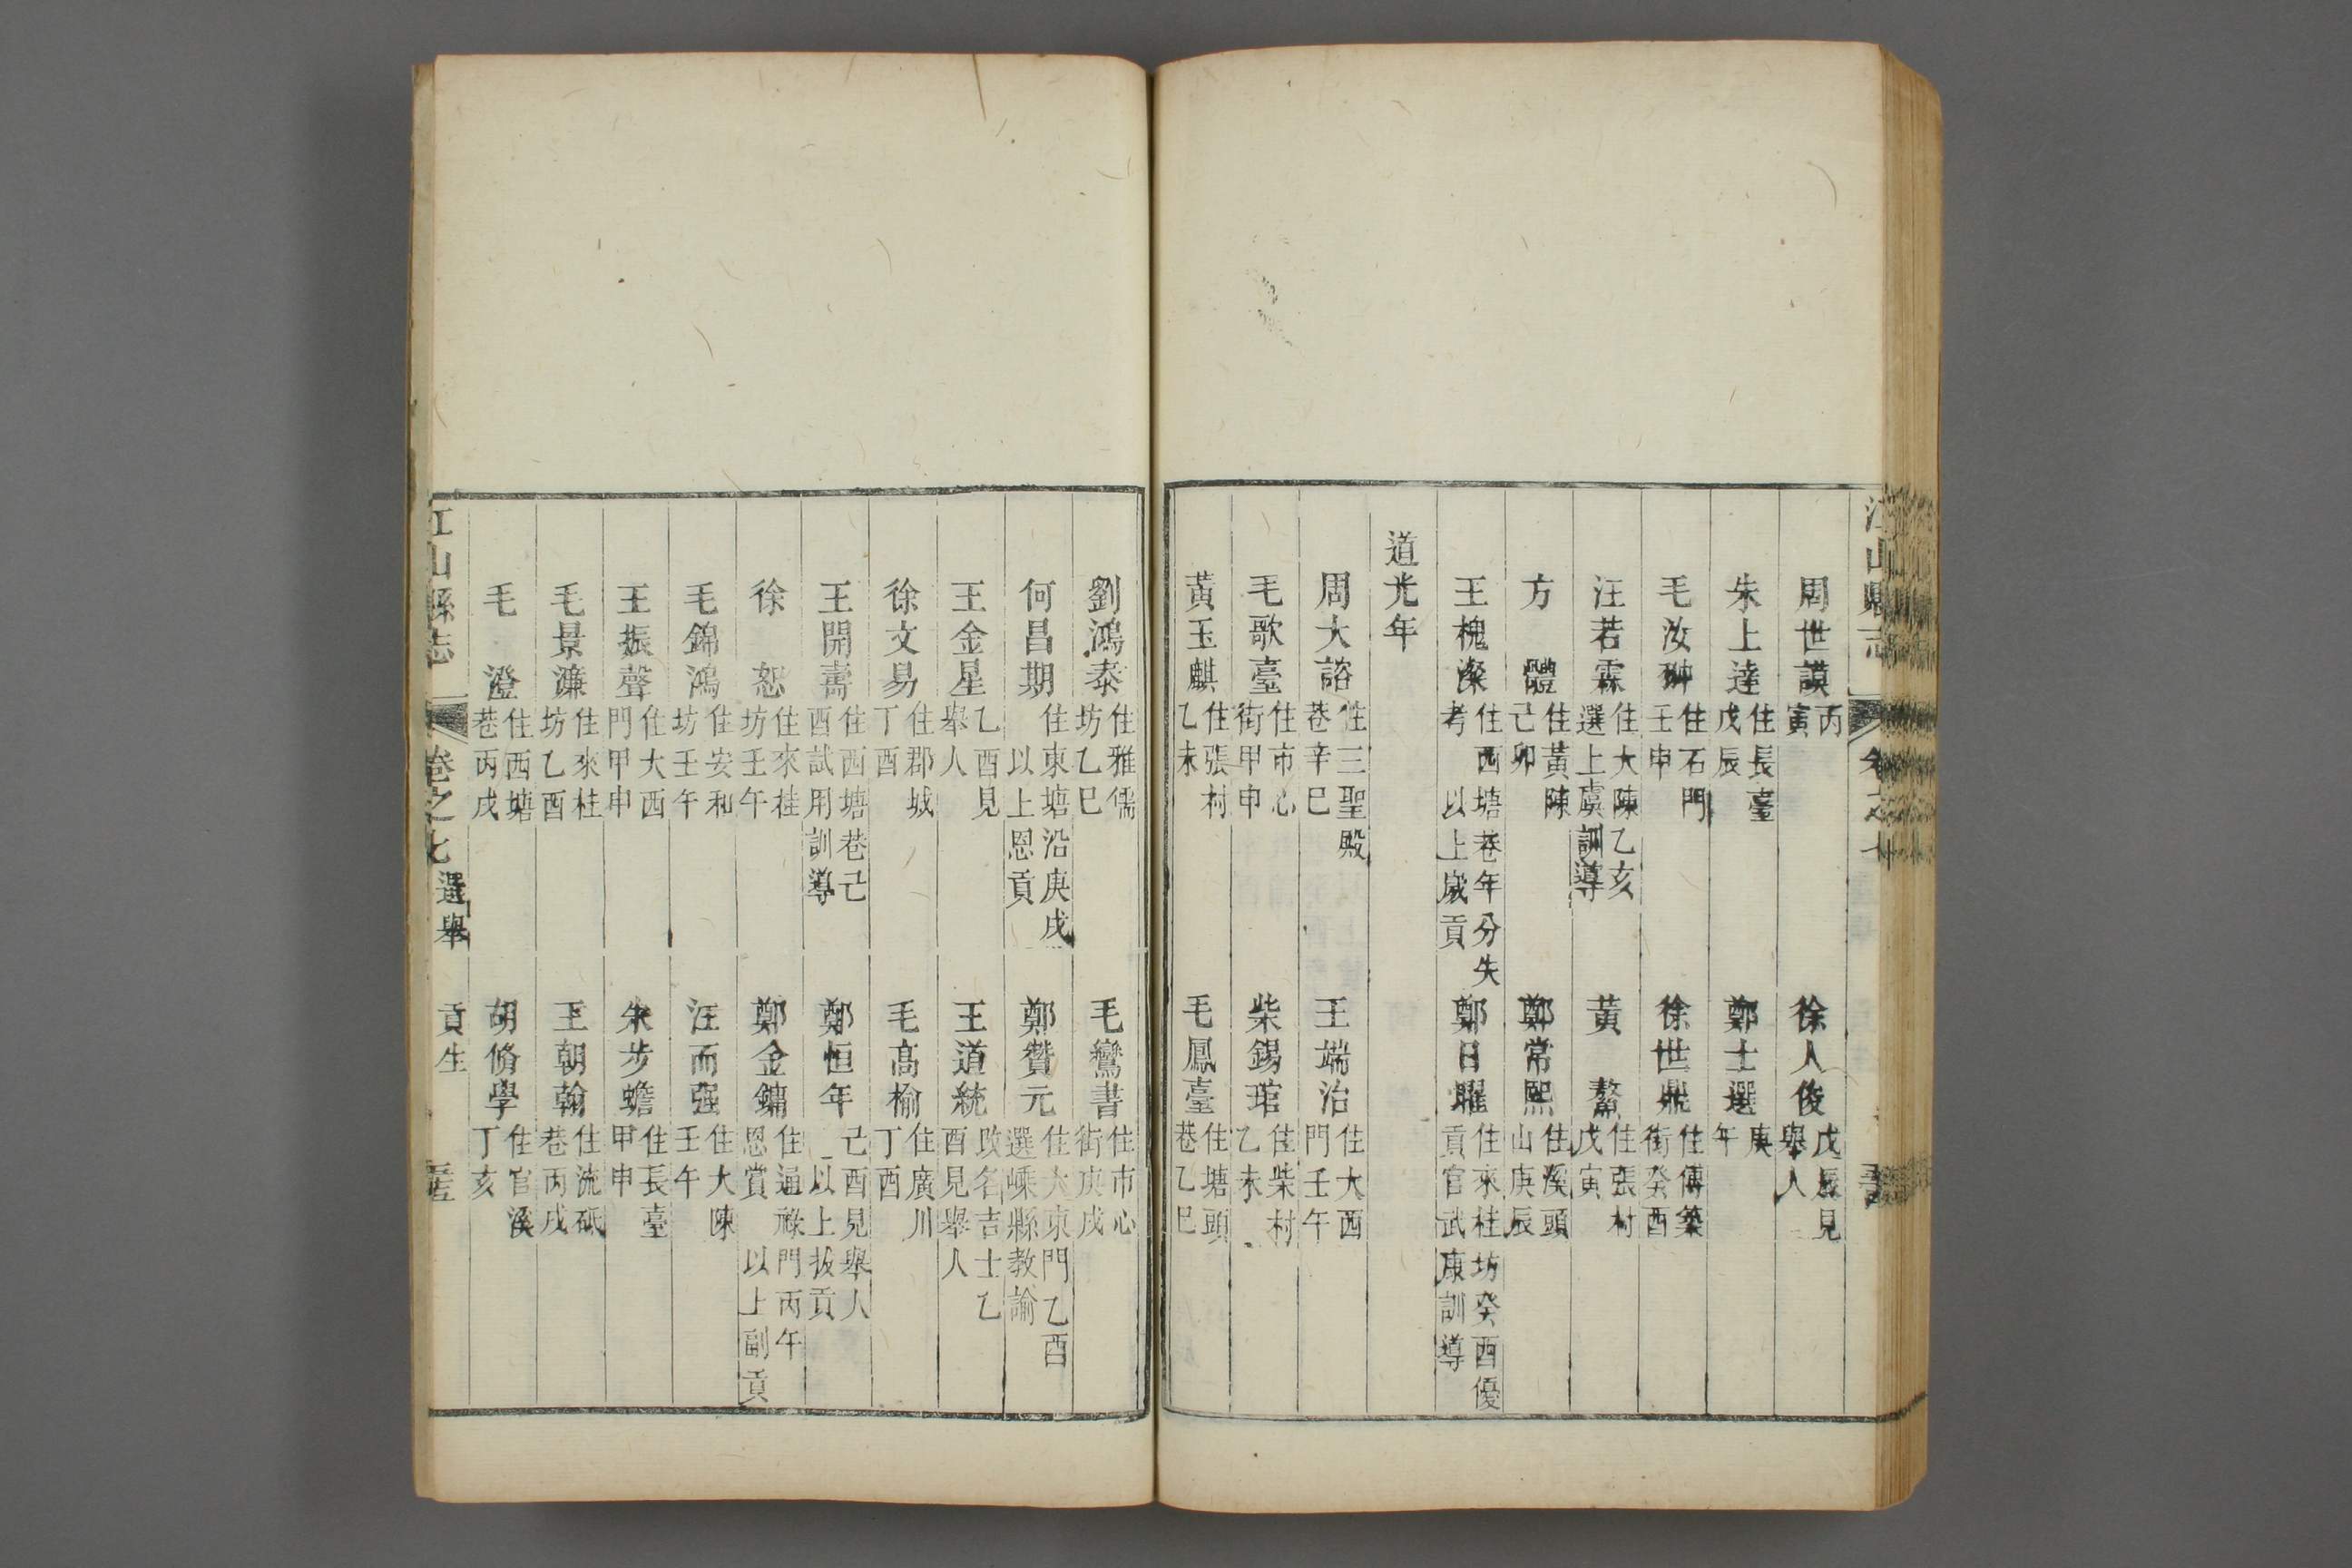 周世謨 丙寅 徐人俊 戊辰見舉人
朱上達 住長臺戊辰 鄭士選 庚午
毛汝翀 住石門壬申 徐世鼎 住傅築街癸酉
汪若霖 住大陳乙亥選上虞訓導 黃鰲 住張村戊寅
方體 住黃陳己卯 鄭常熙 住溪頭山庚辰
王槐燦 住西塘巷年分失考 以上歲貢 鄭日曜 住來桂坊癸酉優貢官武康訓導
道光年
周大諮 住三聖殿巷辛巳 王端治 住大西門壬午
毛歌臺 住市心街甲申 柴錫琯 住柴村乙未
黃玉麒 住張村乙未 毛鳳臺 住塘頭巷乙巳
劉鴻泰 住雅儒坊乙巳 毛鸞書 住市心街庚戌
何昌期 住東塘沿庚戌 以上恩貢 鄭贊元 住大東門乙酉選嵊縣教諭
王金星 乙酉見舉人 王道統 改名吉士乙酉見舉人
徐文易 住郡城丁酉 毛高榆 住廣川丁酉
王開壽 住西塘巷己酉試用訓導 鄭恒年 己酉見舉人 以上拔貢
徐恕 住來桂坊壬午 鄭金鏞 住通祿門丙午恩賞 以上副貢
毛錦鴻 住安和坊壬午 汪而强 住大陳壬午
王振聲 住大西門甲申 朱步蟾 住長臺甲申
毛景濂 住來桂坊乙酉 王朝翰 住流砥巷丙戌
毛澄 住西塘巷丙戌 胡脩學 住官溪丁亥
江山縣志 卷之七 選舉 貢生